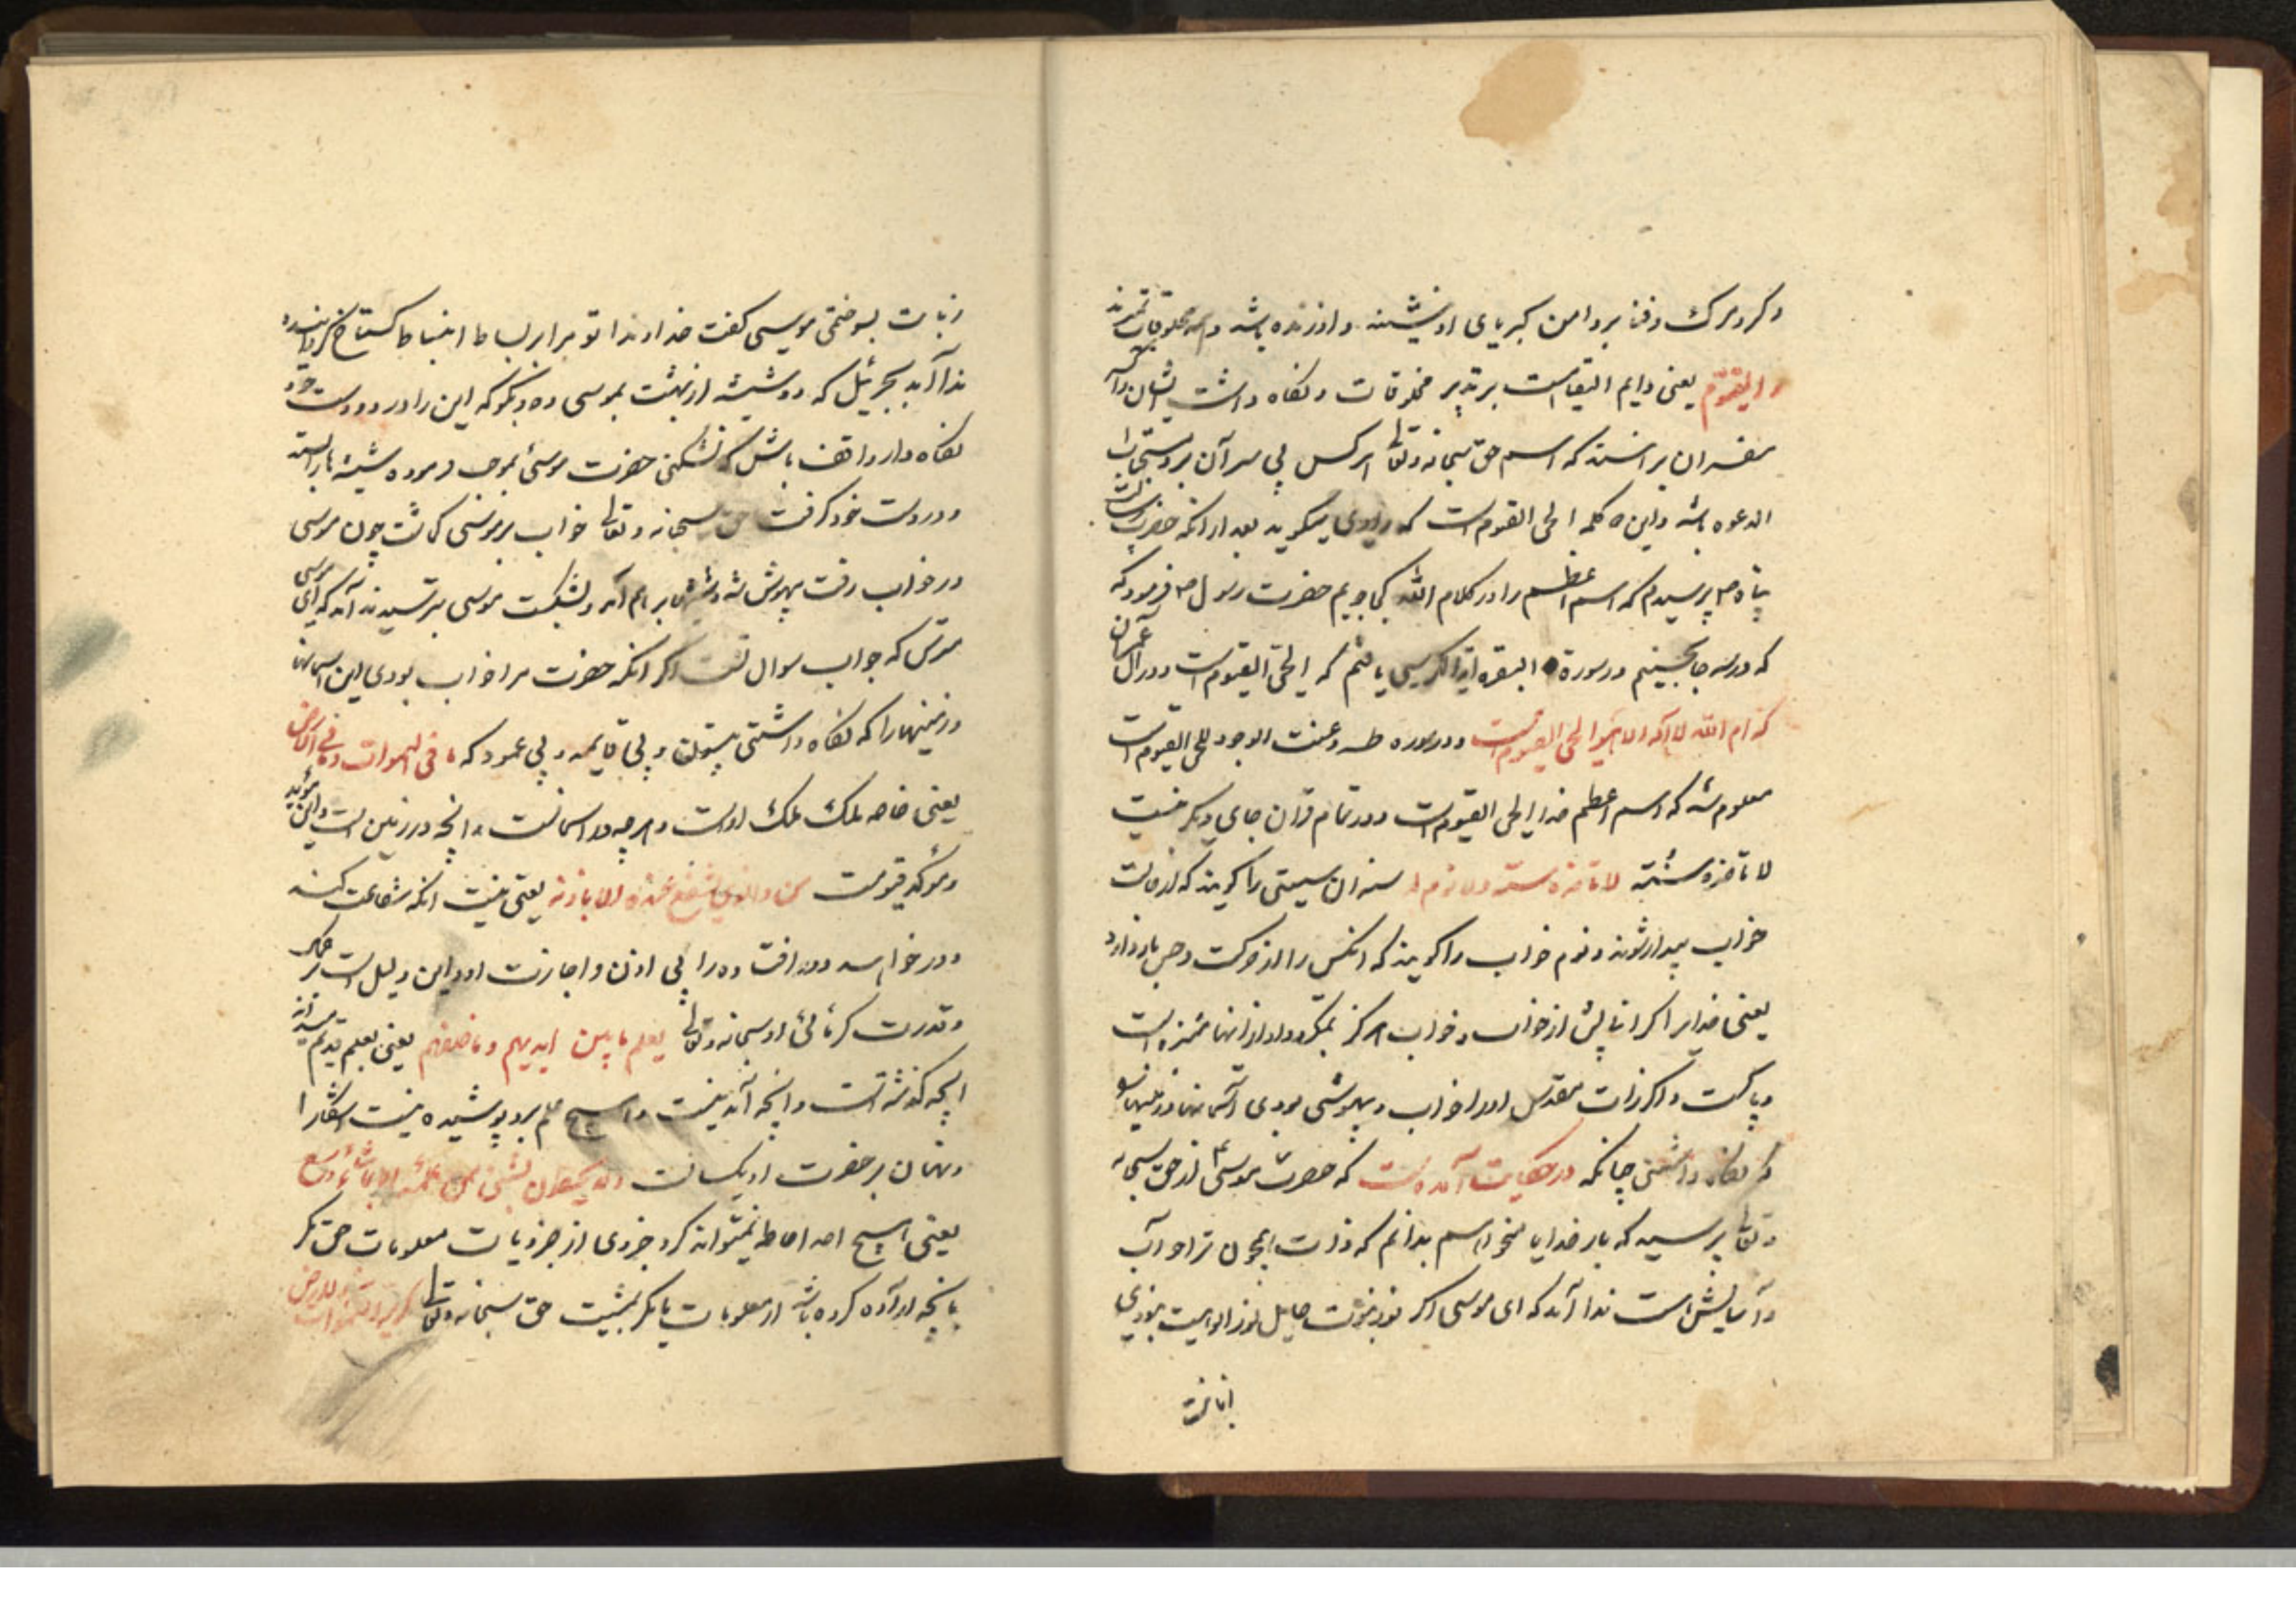 و کرد مرک و فنا بر دامن کبریای او ننشیند و او زنده باشد و همه مخلوقات بمیرند
القیوم یعنی دایم القیامست بر تدبیر مخلوقات و نکاه داشت ایشان
مفسران برانند که اسم حق سبحانه وتعالی هر کس بی سر آن برد مستجاب
الدعوه باشد و این کلمه الحی القیوم است که راوی میکوید بعد از انکه حضرت رسالت
پناه ص پرسیدم که اسم اعظم را در کلام الله کجا جویم حضرت رسول ص فرمود که
که در سه جا بجستم در سورة البقره ایة الکرسی یافتم که الحی القیوم است و در آل عمران
که الم الله لا اله الا هو الحی القیوم است و در سوره طه وعنت الوجوه للحی القیوم است
معلوم شد که اسم اعظم خدا الحی القیوم است و در تمام قران جای دیکر نیست
لا تاخذه سنة لا تاخذه سنة ولا نوم سنه ان سستی را کویند که از
خواب بیدار شوند و نوم خواب را کویند که انکس را از حرکت و حس باز دارد
یعنی خدایرا که انا پیش از خواب و خواب هرکز نمیکرد و او از انها منزه است
و پاکست و اکر ذات مقدس او را خواب و بیهوشی بودی آسمانها و زمینها
که نکاه داشتی چنانکه در حکایت آمده است که حضرت موسی از حق سبحانه
وتعالی پرسید که بار خدایا میخواهم بدانم که ذات بیچون ترا خواب
و آسایش است ندا آمد که ای موسی اکر نور نبوت حایل نور الوهیت نبودی
زبانت بسوختی موسی کفت خداوندا تو مرا بر بساط انبساط کستاخ کردانیده
ندا آمد بجبرئیل که دو شیشه از بهشت بموسی ده و بکو که این را در دو دست خود
نکاه دار و واقف باش که نشکنی حضرت موسی بموجب فرموده شیشه را بستد
و در دست خود کرفت حق سبحانه وتعالی خواب بر موسی کماشت چون موسی
در خواب رفت بیهوش شد و شیشها بر هم آمد و بشکست موسی بترسید ندا آمد که ای موسی
مترس که جواب سوال تست اکر انکه حضرت مرا خواب بودی این اسمانها
و زمینها را که نکاه داشتی بیستون و بی قایمه و بی عمود که ما فی السموات وما فی الارض
یعنی خاصه ملک ملک اوست و هر چه در اسمانست و انچه در زمین است و این مؤید
و مؤکد قیومیت من ذا الذی یشفع عنده الا باذنه یعنی نیست انکه شفاعت کند
و در خواهد درافتاده را بی اذن و اجازت او و این دلیل است بر
و قدرت کرمائی او سبحانه وتعالی یعلم ما بین ایدیهم وما خلفهم یعنی بعلم قدیم میداند
انچه کذشته است و انچه آینده است و هیچ علم برو پوشیده نیست اشکارا
و نهان بر حضرت او یکسانست ولا یحیطون بشئ من علمه الا بما شاء وسع
یعنی هیچ احد احاطه نمیتواند کرد جزوی از جزویات معلومات حق مکر
بانچه اراده کرده باشد از معلومات یا مکر بمشیت حق سبحانه وتعالی کرسیه السموات والارض